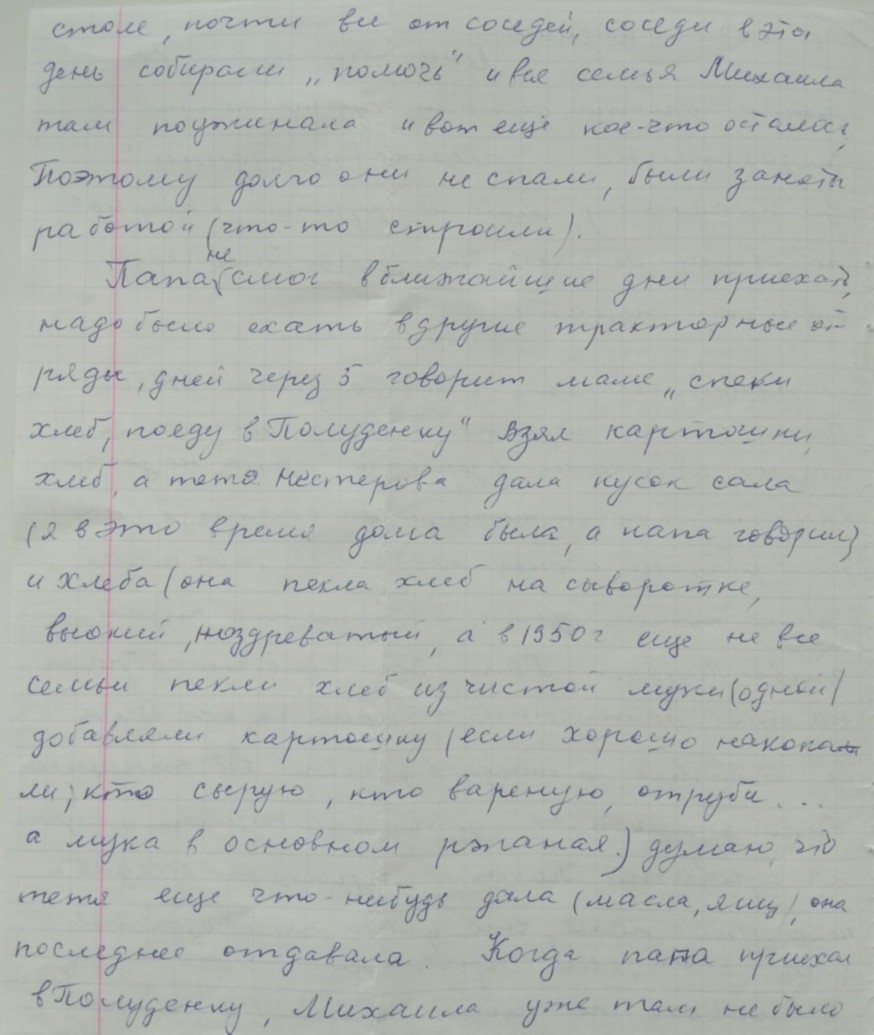 столе, почти все от соседей, соседи в этот
день собирали „помочь" и вся семья Михаила
там поужинала и вот еще кое-что осталось,
Поэтому долго они не спали, были заняты
работой (что-то строили).
Папа не смог в ближайшие дни приехать,
надо было ехать в другие тракторные от-
ряды, дней через 5 говорит маме „спеки
хлеб, поеду в Полуденку" Взял картошки,
хлеб, а тетя Нестерова дала кусок сала
(я в это время дома была, а папа говорил)
и хлеба (она пекла хлеб на сыворотке,
высокий, ноздреватый, а в 1950 г еще не все
семьи пекли хлеб из чистой муки (одной)
добавляли картошку (если хорошо накопа-
ли, кто сырую, кто вареную, отруби...
а мука в основном ржаная.) думаю, что
тетя еще что-нибудь дала (масла, яиц), она
последнее отдавала. Когда папа приехал
в Полуденку, Михаила уже там не было